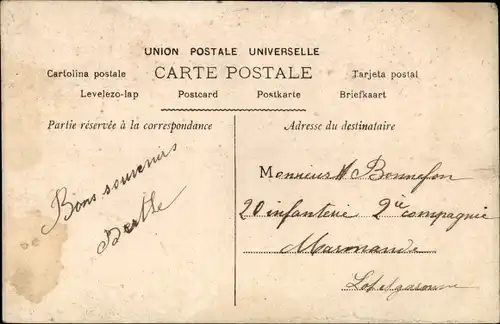 UNION POSTALE UNIVERSELLE
Cartolina postale CARTE POSTALE Tarjeta postal
Levelezo-lap Postcard Postkarte Briefkaart
Partie réservée à la correspondance
Adresse du destinataire
Bons souvenirs
Berthe
Monsieur Bonnefon
20 infanterie 2ie compagnie
Marmande
Lot et garonne